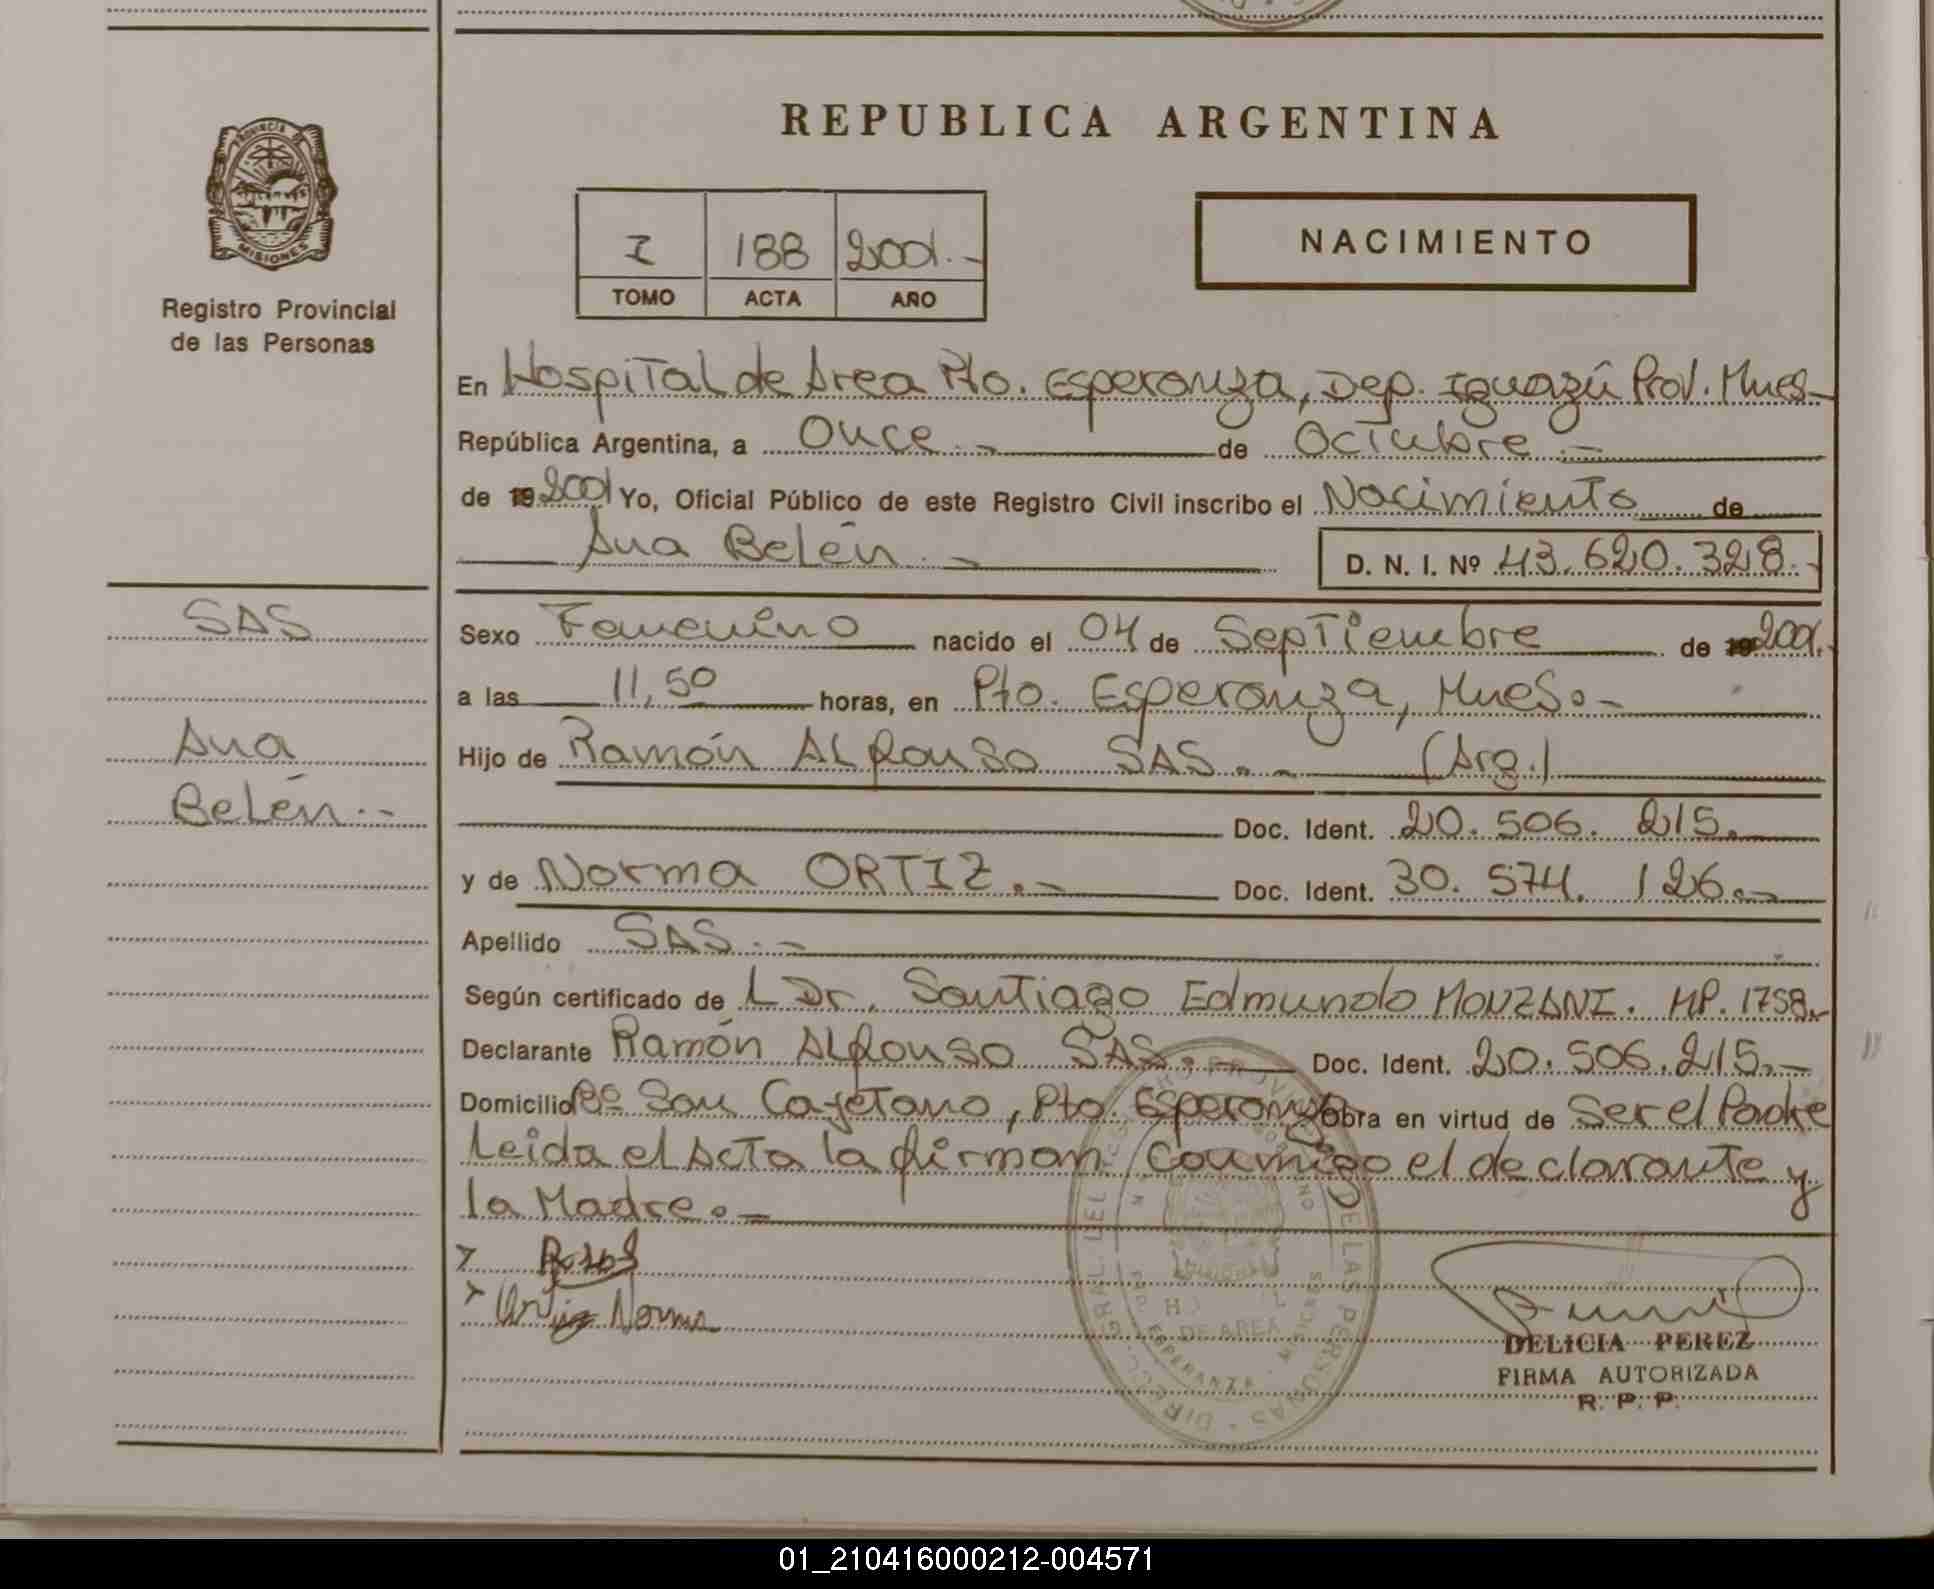 PROVINCIA DE
MISIONES
Registro Provincial
de las Personas
SAS
Ana
Belén.-
REPUBLICA ARGENTINA
I 188 2001.-
TOMO ACTA AÑO
NACIMIENTO
En Hospital de Area Pto. Esperanza, Dep. Iguazú Prov. Mnes-
República Argentina, a Once.- de Octubre.-
de 19 2001 Yo, Oficial Público de este Registro Civil inscribo el Nacimiento de
Ana Belén.-
D. N. I. Nº 43.620.328.-
Sexo Femenino nacido el 04 de Septiembre de 19 2001.
a las 11,50 horas, en Pto. Esperanza, Mnes.-
Hijo de Ramón Alfonso SAS.- (Arg.)
Doc. Ident. 20.506.215.
y de Norma ORTIZ.- Doc. Ident. 30.574.126.-
Apellido SAS.-
Según certificado de L Dr. Santiago Edmundo MONZANI. MP. 1758.-
Declarante Ramón Alfonso SAS.- Doc. Ident. 20.506.215.-
Domicilio Bº San Cayetano, Pto. Esperanza Obra en virtud de Ser el Padre
Leida el Acta la firman Conmigo el declarante y
la Madre.-
Ortiz Norma
DELICIA PEREZ
FIRMA AUTORIZADA
R. P. P.
DE AREA
ESPERANZA - MISIONES
01_210416000212-004571